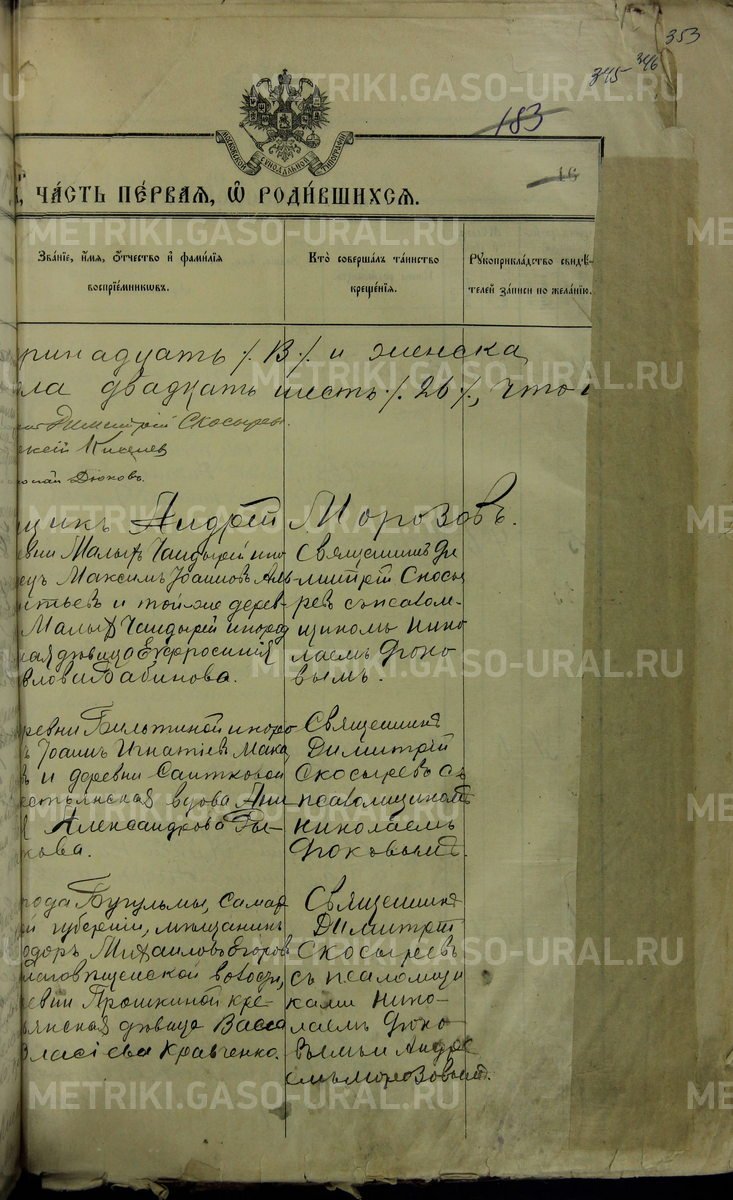 353
346
345
183
16
МОСКОВСКОЙ СУНОДАЛЬНОЙ ТИПОГРАФІИ
ЧА́СТЬ ПЕ́РВАЯ, Ѽ РОДИ́ВШИХСЯ.
Зва́ніе, и́мя, о́тчество и҆ фами́лія
воспріе́мниковъ.
Кто̀ соверша́лъ та́инство
креще́нія.
Рꙋкоприкла́дство свидѣ́-
телей за́писи по жела́нію.
ринадцать /13/ и женска
ла двадцать шесть /26/, что
Димитрій Скосырев
ксій Киселев
колай Фоковъ.
щикъ Андрей Морозовъ.
вни Малыхъ Чандырей ино
ецъ Максимъ Іоанновъ Аль
нтьевъ и той-же дерев-
Малыхъ Чандырей инород
кая дѣвица Ефросинія
влова Бабинова.
Священникъ Ди
митрій Скосы
ревъ съ псалом-
щикомъ Нико
лаемъ Фоко
вымъ.
ревни Бильтиной иноро
ъ Іоаннъ Игнатіевъ Мака
въ и деревни Саитковой
рестьянская вдова Анн
Александрова Ры-
кова.
Священникъ
Димитрій
Скосыревъ съ
псаломщикомъ
Николаемъ
Фоковымъ.
рода Бугульмы, Самар
й губерніи, мѣщанинъ
одоръ Михаиловъ Егоров
лаговѣщенской волости,
ревни Прошкиной кре-
ьянская дѣвица Васса
Власіева Кравченко.
Священникъ
Димитрій
Скосыревъ
съ псаломщи
ками Нико-
лаемъ Фоко-
вымъ и Андре
емъ Морозовымъ.
METRIKI.GASO-URAL.RU